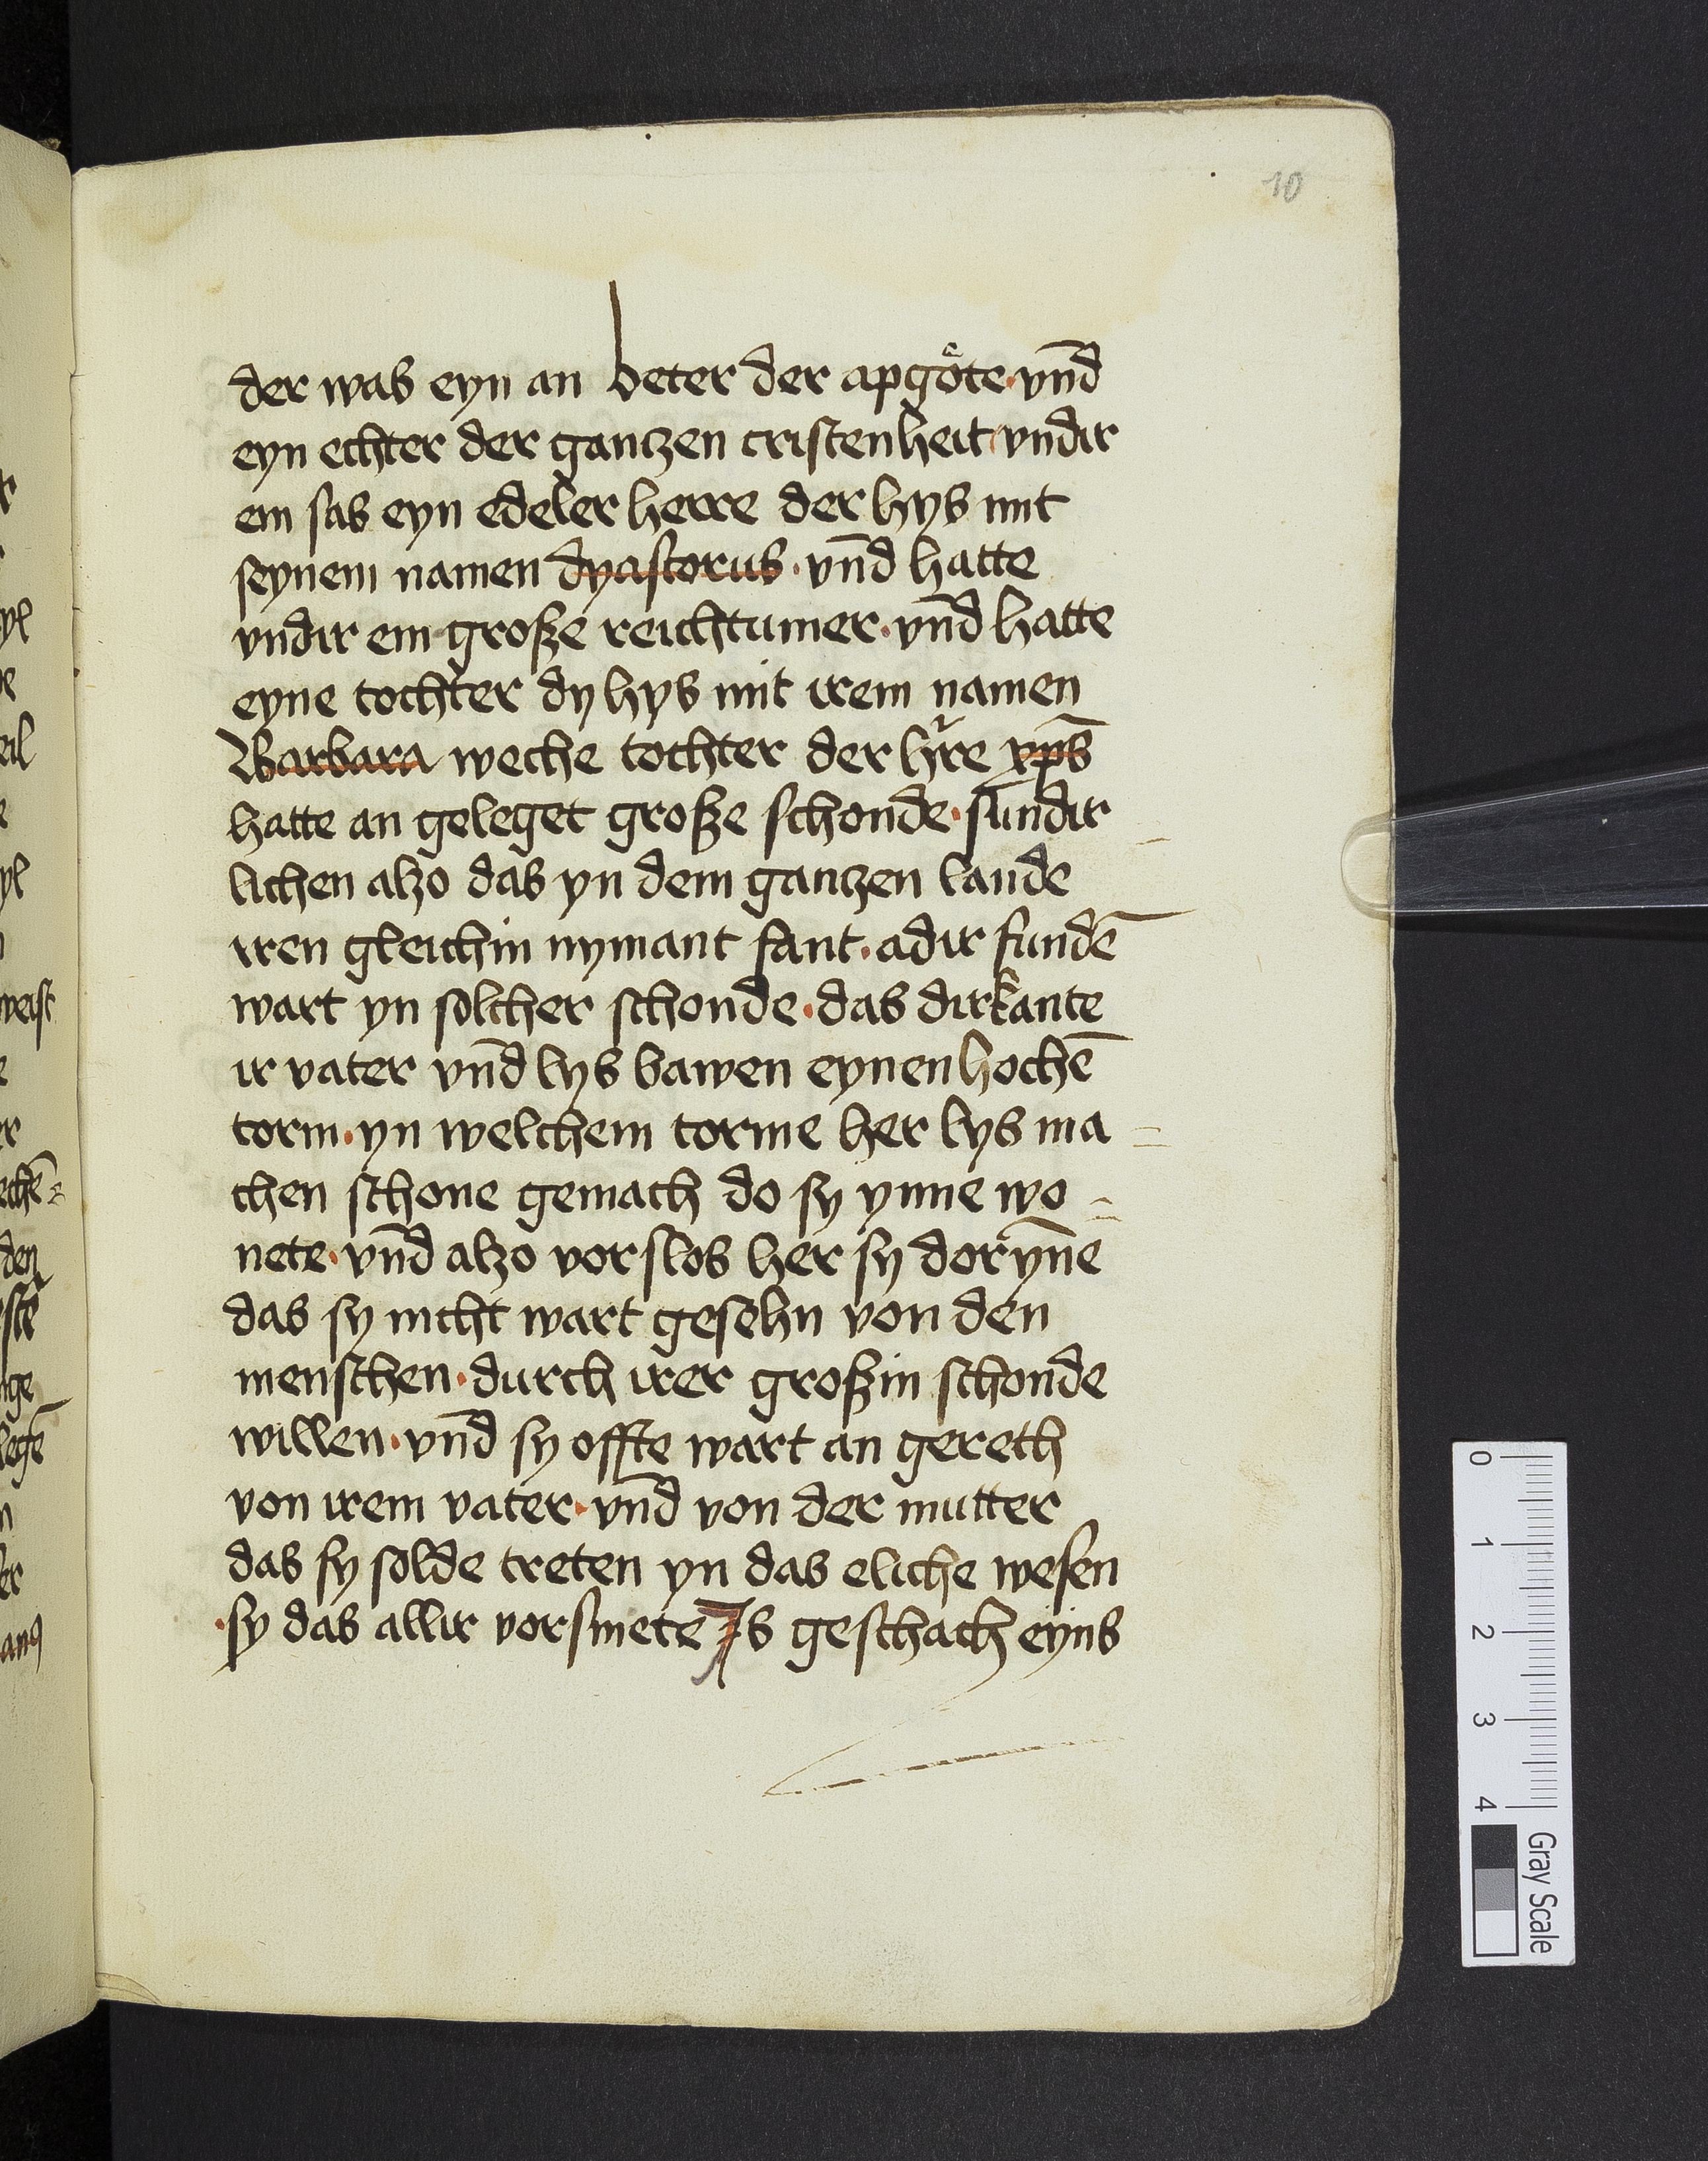 10
der was eyn an beter der apgöte · vnd̄
eyn echter der gantzen cristenheit · vndir
em sas eyn edeler herre der hys mit
seynem namen dyascorus · vnd̄ hatte
vndir em große reichtumer · vnd̄ hatte
eyne tochter dy hys mit irem namen
Barbara weche tochter der hr̄e xp̄s
hatte an geleget große schonde · sundir
lichen alzo das yn dem gantzen lande
iren gleichin nymant fant · adir fundē
wart yn solcher schonde · das dirkante
ir vater vnd̄ lys bawen eynen hochē
torm · yn welchem torme her lys ma =
chen schone gemach do sy ynne wo =
nete · vnd̄ alzo vorslos her sy dorẏne
das sy nicht wart gesehn von den
menschen · durch irer großin schonde
willen · vnd̄ sy offte wart an gereth
von irem vater · vnd̄ von der mutter
das sy solde treten yn das eliche wesen
· sy das allir vorsmete Is geschach eyns
0 1 2 3 4
Gray Scale